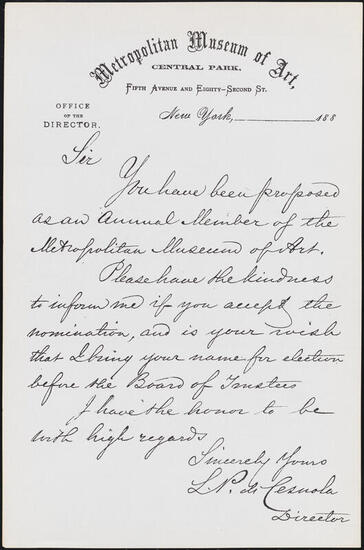 Metropolitan Museum of Art,
CENTRAL PARK.
FIFTH AVENUE AND EIGHTY-SECOND ST.
OFFICE
OF THE
DIRECTOR.
New York, 188
Sir
You have been proposed
as an Annual Member of the
Metropolitan Museum of Art.
Please have the kindness
to inform me if you accept the
nomination, and is your wish
that I bring your name for election
before the Board of Trustees
I have the honor to be
with high regards
Sincerely Yours
L. P. di Cesnola
Director